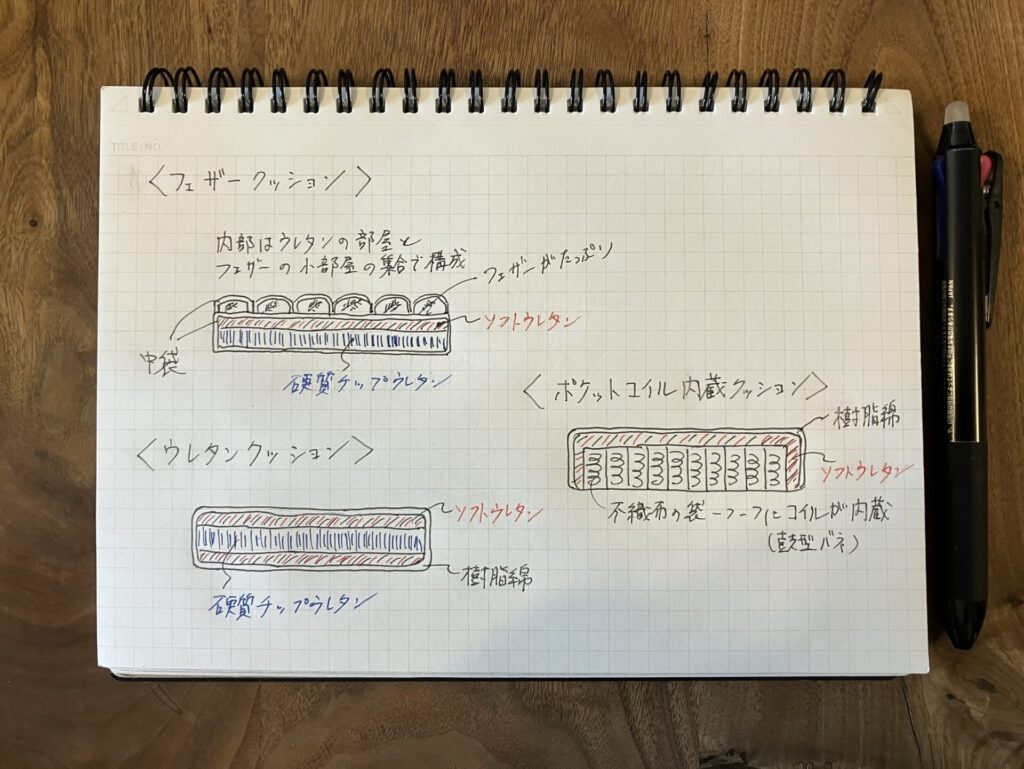 TITLE/NO.
〈フェザークッション〉
内部はウレタンの部屋と
フェザーの小部屋の集合で構成
フェザーがたっぷり
ソフトウレタン
中袋
硬質チップウレタン
〈ポケットコイル内蔵クッション〉
樹脂綿
ソフトウレタン
不織布の袋一つ一つにコイルが内蔵
(鼓型バネ)
〈ウレタンクッション〉
ソフトウレタン
樹脂綿
硬質チップウレタン